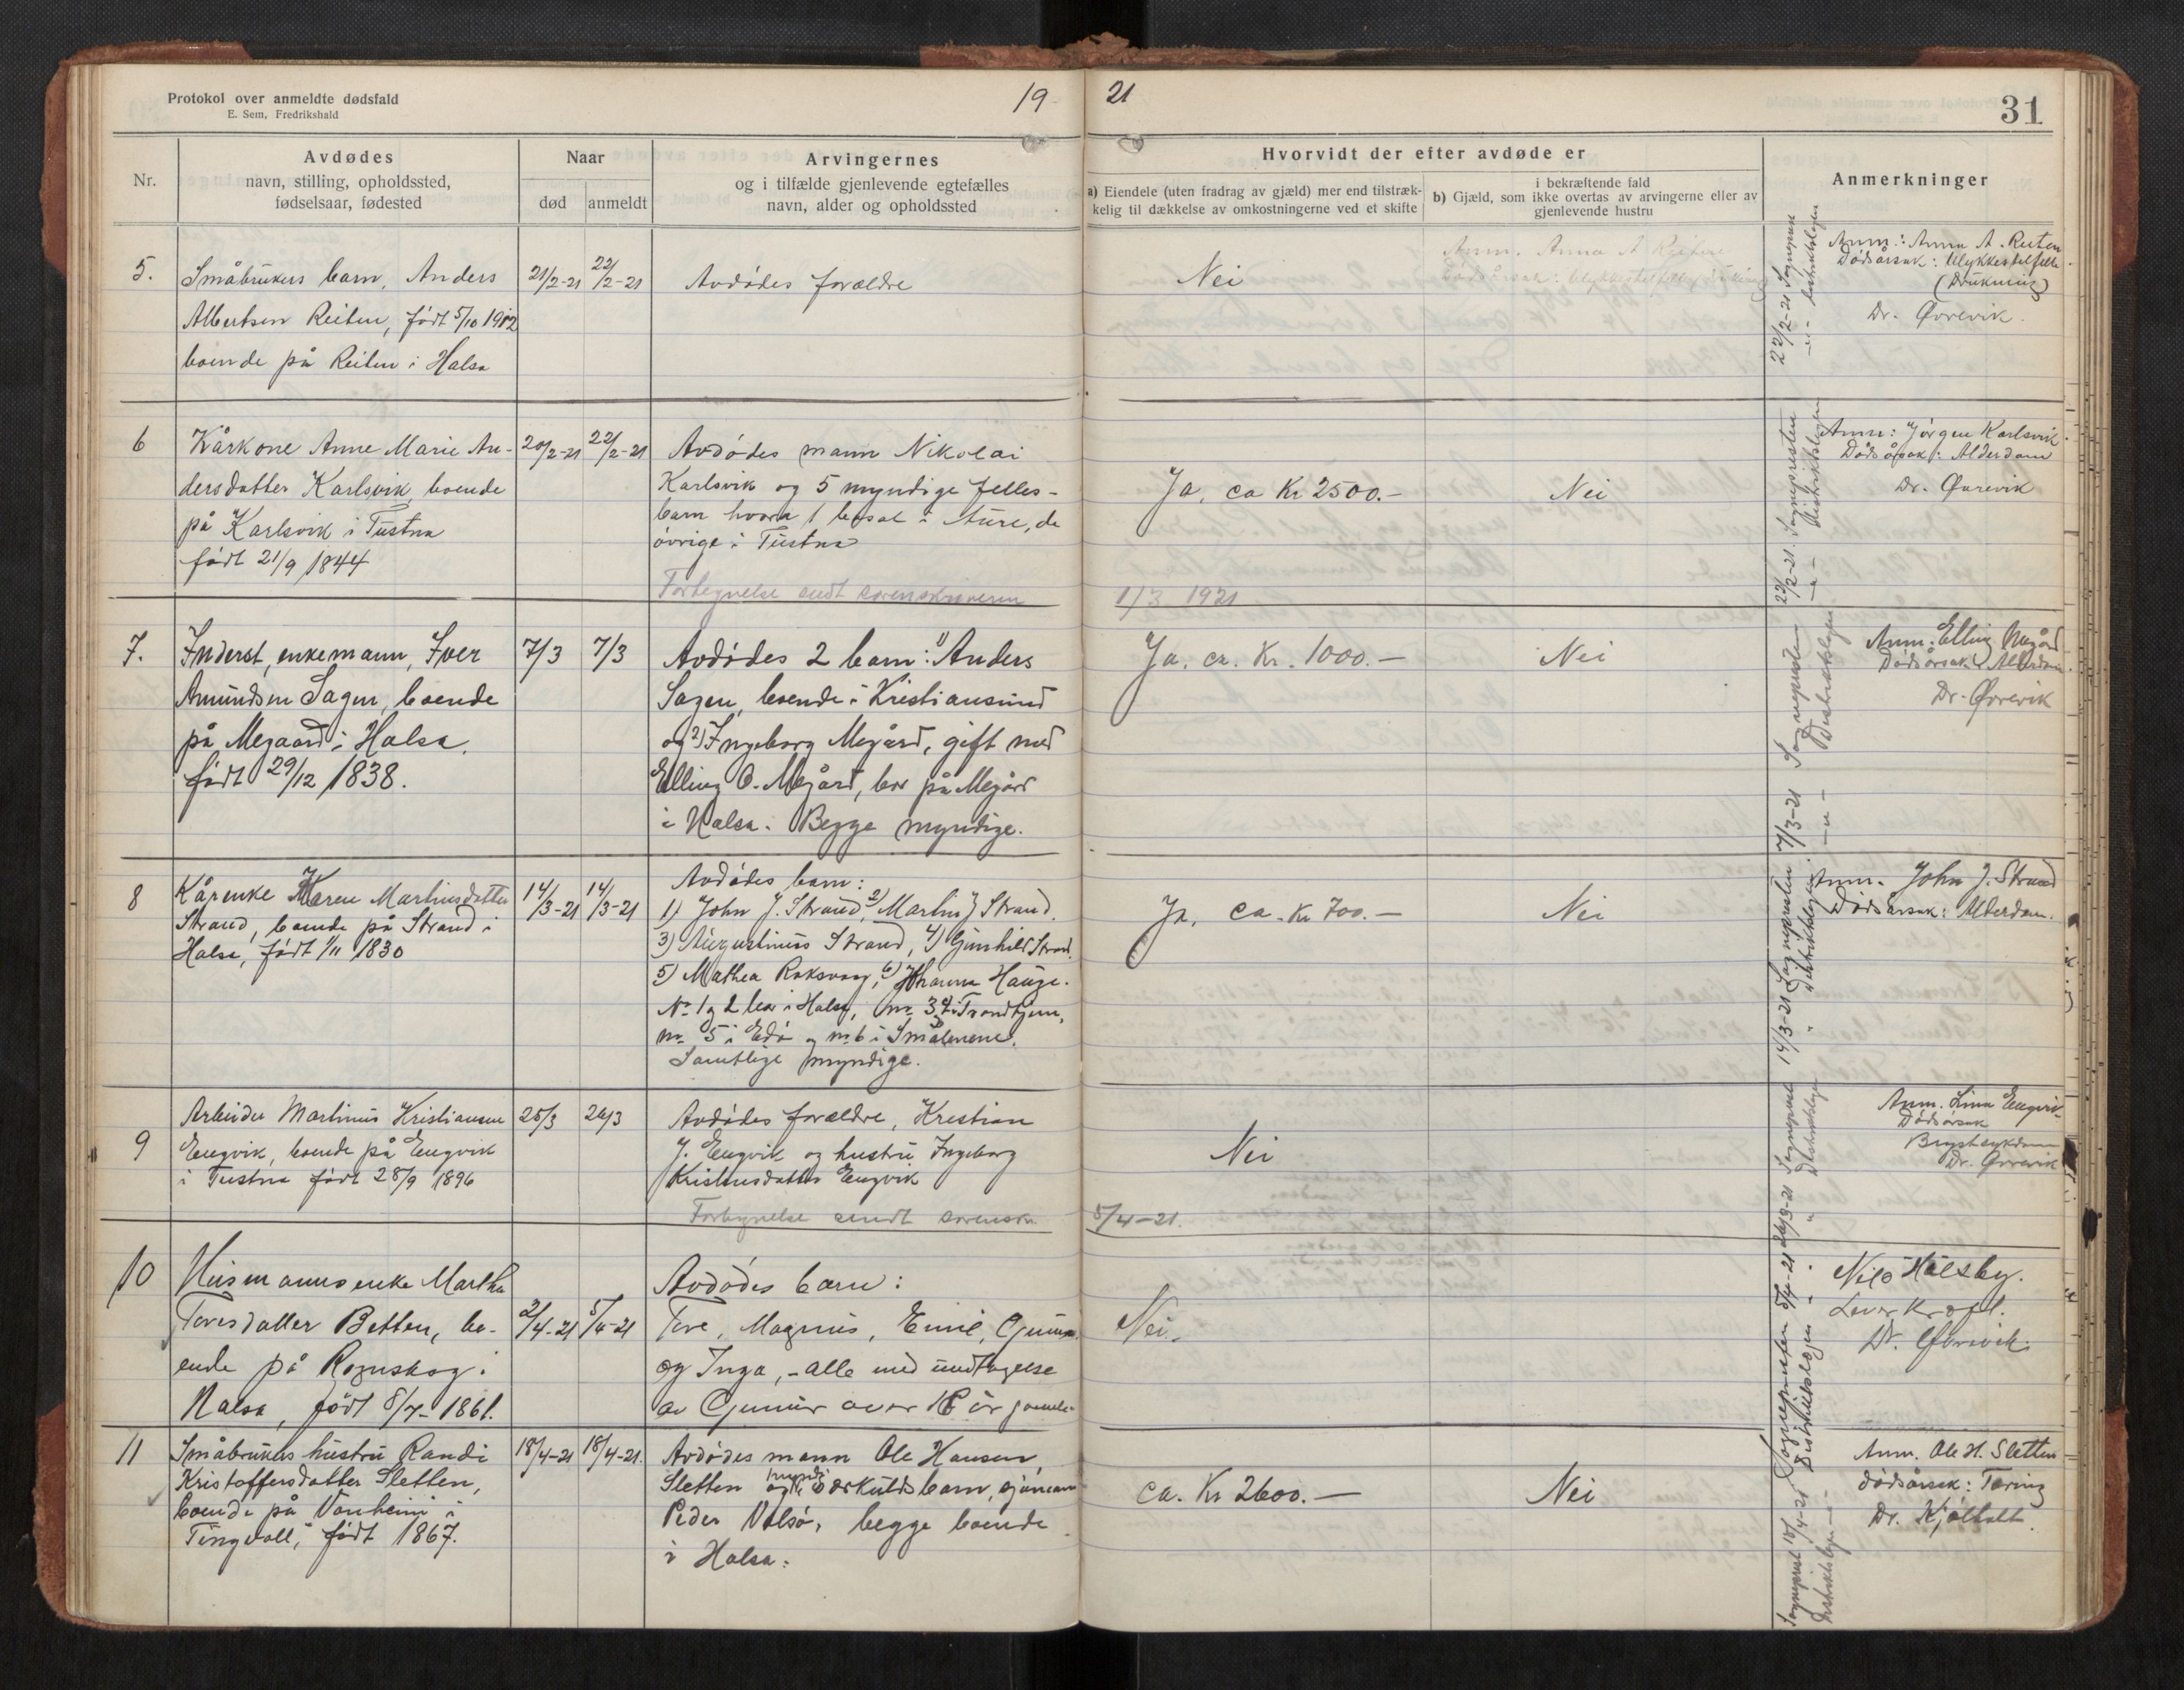 Protokol over anmeldte dødsfald
E. Sem, Fredrikshald
19
21
31
Nr.
Avdødes
navn, stilling, opholdssted,
fødselsaar, fødested
Naar
død
anmeldt
Arvingernes
og i tilfælde gjenlevende egtefælles
navn, alder og opholdssted
Hvorvidt der efter avdøde er
a) Eiendele (uten fradrag av gjæld) mer end tilstræk-
kelig til dækkelse av omkostningerne ved et skifte
i bekræftende fald
b) Gjæld, som ikke overtas av arvingerne eller av
gjenlevende hustru
Anmerkninger
5.
Småbrukers barn, Anders
Albertsen Reiten, født 5/10 1912
boende på Reiten i Halsa
21/2-21
22/2-21
Avdødes forældre
Nei
Anm. Anna A Reiten
Dødsårsak: Ulykkestilfelle
22/2-21 Sogneprest
-"- distriktslegen
Anm.: Anna A. Reiten
Dødsårsak: Ulykkestilfelle
(Druknig)
Dr. Øvrevik.
6
Kårkone Anne Marie An-
dersdatter Karlsvik, boende
på Karlsvik i Tustna
født 21/9 1844
20/2-21
22/2-21
Avdødes mann Nikolai
Karlsvik og 5 myndige felles-
barn hvora 1 bosat i Aure, de
øvrige i Tustna
Fortegnelse sendt sorenskriveren
1/3 1921
Ja, ca Kr 2500.-
Nei
22/2-21. Sognepresten
-"- distriktslegen
Anm: Jørgen Karlsvik
Dødsårsak: Alderdom
Dr. Øvrevik
7.
Inderst, enkemann, Iver
Amundsen Sagen, boende
på Megaard i Halsa.
født 29/12 1838.
7/3
7/3
Avdødes 2 barn: 1) Anders
Sagen, boende i Kristiansund
og 2) Ingeborg Megård, gift med
Elling O. Megård, bor på Megård
i Halsa. Begge myndige.
Ja. ca. Kr. 1000.-
Nei
7/3-21 Sognepresten
-"- Distriktslegen
Anm. Elling Megård
Dødsårsak: Alderdom
Dr. Øvrevik
8
Kårenke Karen Martinsdatter
Strand, boende på Strand i
Halsa, født 1/11 1830
14/3-21
14/3-21
Avdødes barn:
1) John J. Strand, 2) Martin J Strand.
3) Augustinus Strand, 4) Gunhild Strand.
5) Mathea Roksvaag, 6) Johanna Hauge.
No 1 og 2 bor i Halsa, no 3, 4 i Trondhjem,
no 5 i Edø og no 6 i Smålenene.
Samtlige myndige.
Ja, ca. Kr 700.-
Nei
14/3-21 Sognepresten.
" Distriktslegen
Anm. John J. Strand
Dødsårsak: Alderdom.
9
Arbeider Martinus Kristiansen
Engvik, boende på Engvik
i Tustna født 28/9 1896
25/3
26/3
Avdødes forældre, Kristian
J. Engvik og hustru Ingeborg
Kristensdatter Engvik
Fortegnelse sendt sorenskr.
5/4-21.
Nei
26/3-21 Sogneprest
" Distriktslegen
Anm. Lina Engvik
Dødsårsak
Brystsykdom
Dr. Øvrevik
10
Husmannsenke Martha
Toresdatter Betten, bo-
ende på Rognskog i
Halsa, født 8/7-1861.
2/4-21
5/4-21
Avdødes barn:
Tore, Magnus, Emil, Gunnar
og Inga, - alle med undtagelse
av Gunnar over 16 år gamle.
Nei.
5/4-21 Sognepresten
" Distriktslegen
Nils Halsby.
Leverkræft.
Dr. Øvrevik.
11
Småbrukers hustru Randi
Kristoffersdatter Sletten,
boende på Vonheim i
Tingvoll, født 1867.
18/4-21
18/4-21.
Avdødes mann Ole Hansen
Sletten og myndi særkuldsbarn, sjømann
Peder Valsø, begge boende
i Halsa.
ca. Kr 2600.-
Nei
Sogneprest 18/4-21
Distriktslegen -"-
Anm. Ole H. Sletten
dødsårsak: Tæring
Dr. Kjølholt.